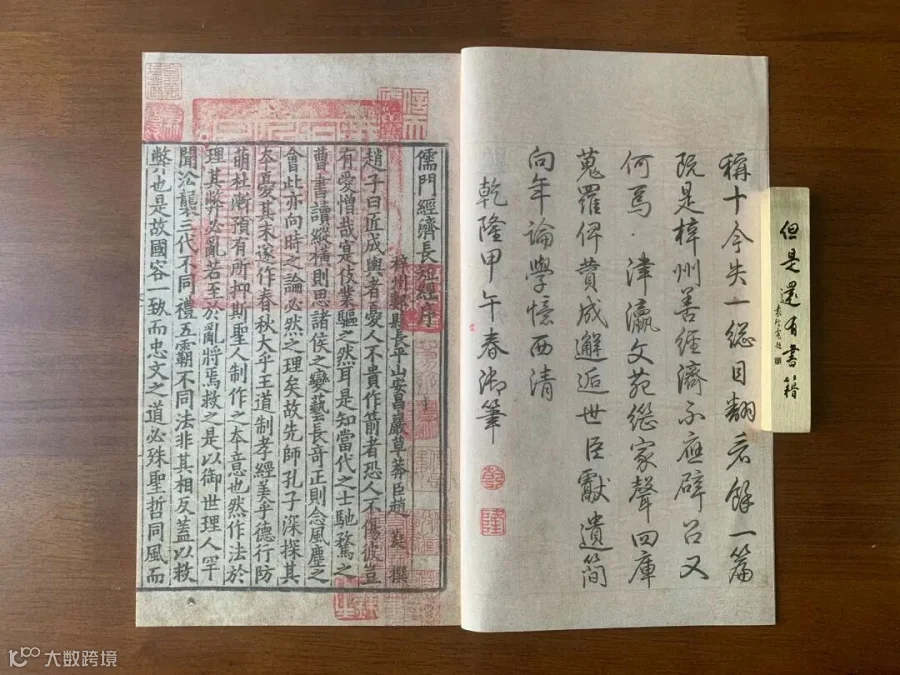 稱十今失一總目翻看餘一篇
既是梓州善經濟不應辟召又
何焉津瀛文苑繼家聲四庫
蒐羅俾贊成邂逅世臣獻遺簡
向年論學憶西清
乾隆甲午春御筆
乾
隆
儒門經濟長短經序
梓州郪縣長平山安昌巖草莽臣趙蕤撰
趙子曰匠成輿者憂人不貴作箭者恐人不傷彼豈
有愛憎哉寔伎業驅之然耳是知當代之士馳騖之
曹書讀縱橫則思諸侯之變藝長奇正則念風塵之
會此亦向時之論必然之理矣故先師孔子深探其
本憂其末遂作春秋大乎王道制孝經美乎德行防
萌杜漸預有所抑斯聖人制作之本意也然作法於
理其弊必亂若至於亂將焉救之是以御世理人罕
聞沿襲三代不同禮五霸不同法非其相反蓋以救
弊也是故國容一致而忠文之道必殊聖哲同風而
但是還有書籍
大数跨境